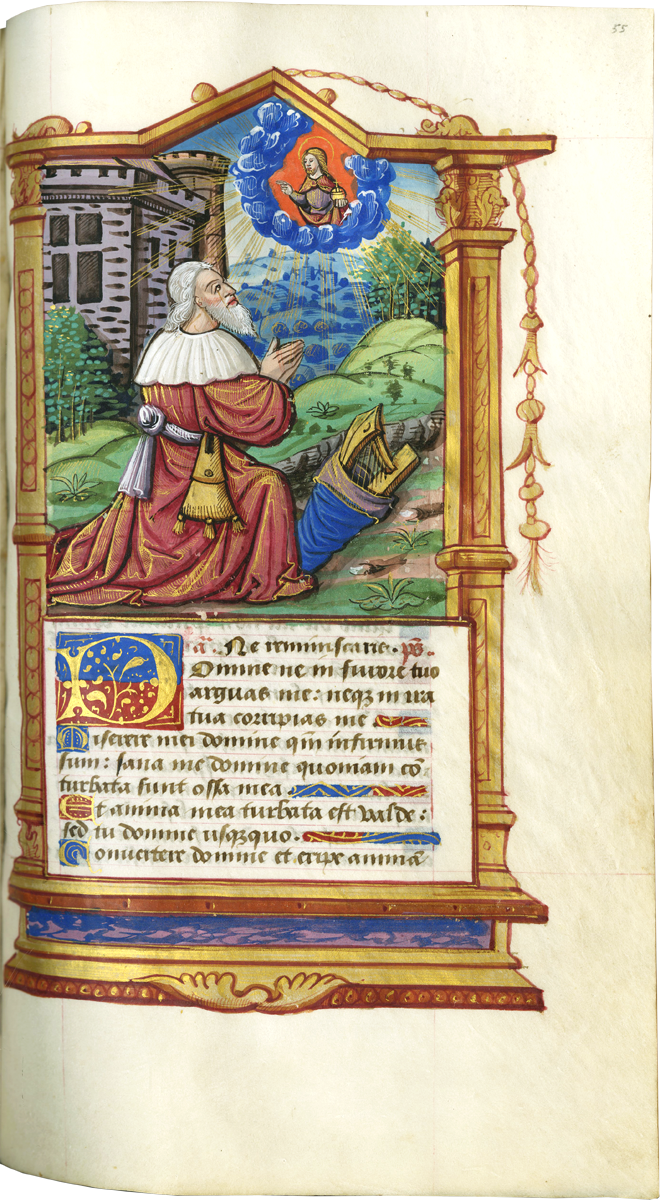 55
a. Ne reminiscaris. ps.
Domine ne in furore tuo
arguas me: neqȝ in ira
tua corripias me
Miserere mei domine qm̄ infirmus
sum: sana me domine quoniam cō
turbata sunt ossa mea
Et anima mea turbata est valde:
sed tu domine usqȝquo.
Convertere domine et eripe animā